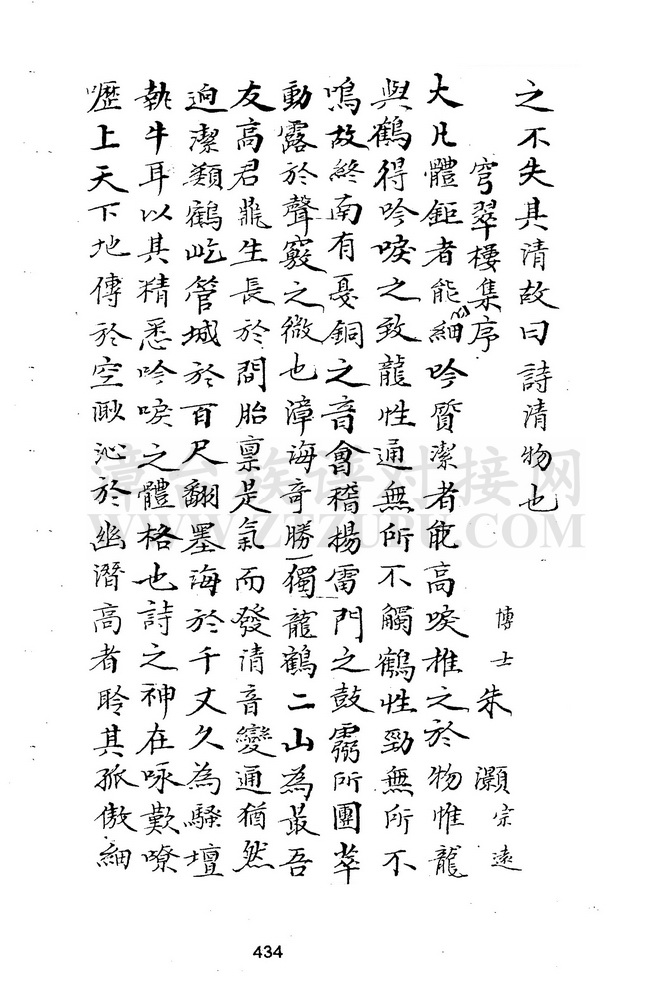 之不失其清故曰詩清物也
穹翠樓集序 博士朱灝宗遠
大凡體鉅者能細吟質潔者能高唳推之於物惟龍
與鶴得吟唳之致龍性通無所不觸鶴性勁無所不
鳴故終南有戛銅之音會稽揚雷門之鼓靈所團萃
動露於聲竅之微也漳海奇勝獨龍鶴二山為最吾
友高君鼎生長於間胎稟是氣而發清音變通猶然
逈潔類鶴屹管城於百尺翻墨海於千丈久為騷壇
執牛耳以其精悉吟唳之體格也詩之神在咏歎嘹
嚦上天下地傳於空敭沁於幽潛高者聆其孤傲細
漳台族谱对接网
WWW.ZTZUPU.COM
434